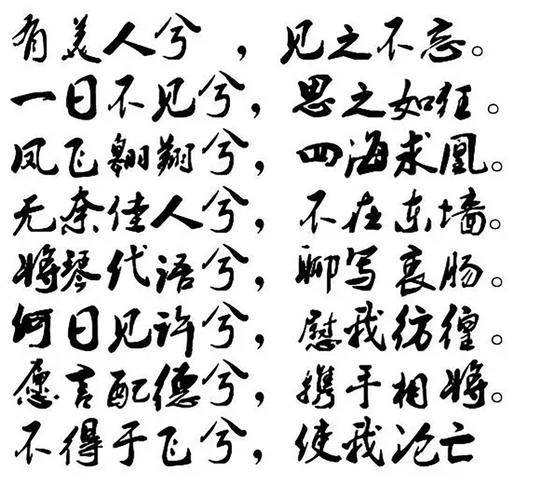 有美人兮，见之不忘。
一日不见兮，思之如狂。
凤飞翱翔兮，四海求凰。
无奈佳人兮，不在东墙。
将琴代语兮，聊写衷肠。
何日见许兮，慰我彷徨。
愿言配德兮，携手相将。
不得于飞兮，使我沦亡